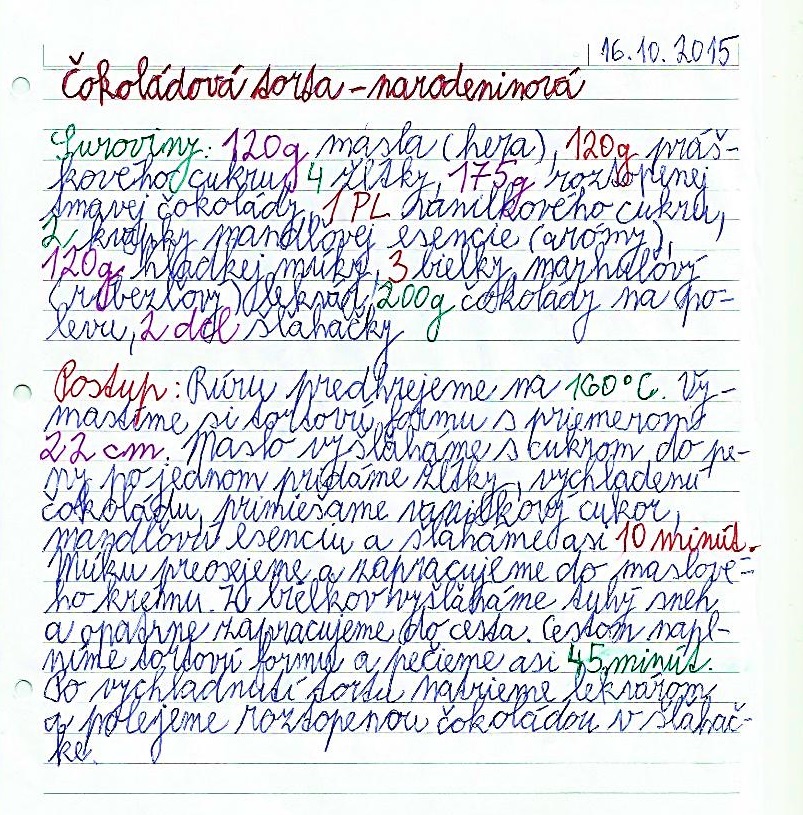 16.10.2015
Čokoládová torta - narodeninová
Suroviny: 120g masla (hera), 120g práš-
kového cukru, 4 žĺtky, 175g roztopenej
tmavej čokolády, 1 PL vanilkového cukru,
2 kvapky mandlovej esencie (arómy),
120g hladkej múky, 3 bielky, marhuľový
(ríbezľový) lekvár, 200g čokolády na po-
levu, 2 dcl šľahačky
Postup: Rúru predhrejeme na 160°C. Vy-
mastíme si tortovú formu s priemerom
22 cm. Maslo vyšľaháme s cukrom do pe-
ny, po jednom pridáme žĺtky, vychladenú
čokoládu, primiešame vanilkový cukor,
mandlovú esenciu a šľaháme asi 10 minút.
Múku preosejeme a zapracujeme do maslové-
ho krému. Z bielkov vyšľaháme tuhý sneh
a opatrne zapracujeme do cesta. Cestom napl-
níme tortovú formu a pečieme asi 45 minút.
Po vychladnutí tortu natrieme lekvárom
a polejeme roztopenou čokoládou v šľahač-
ke.